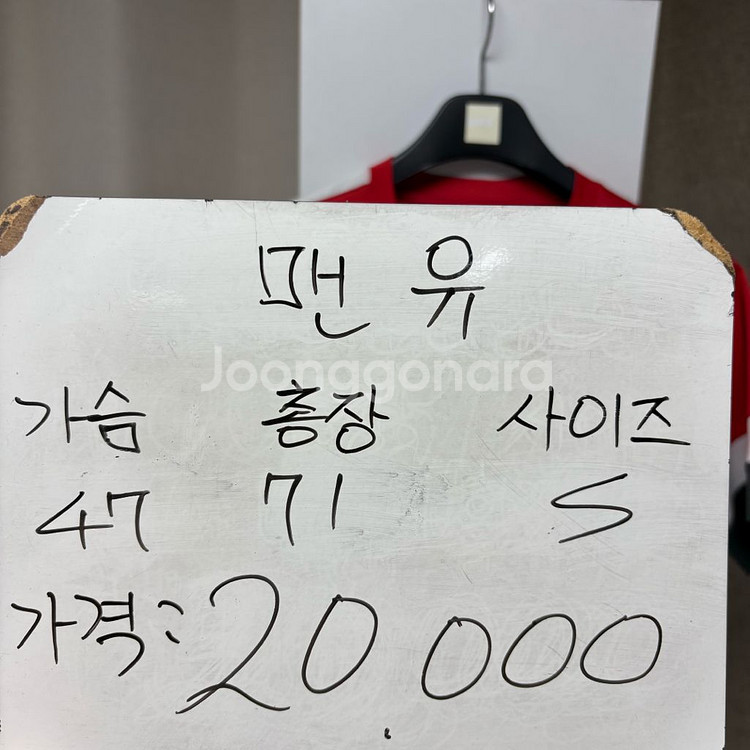 맨유
Joonggonara
가슴 총장 사이즈
47 71 S
가격: 20,000